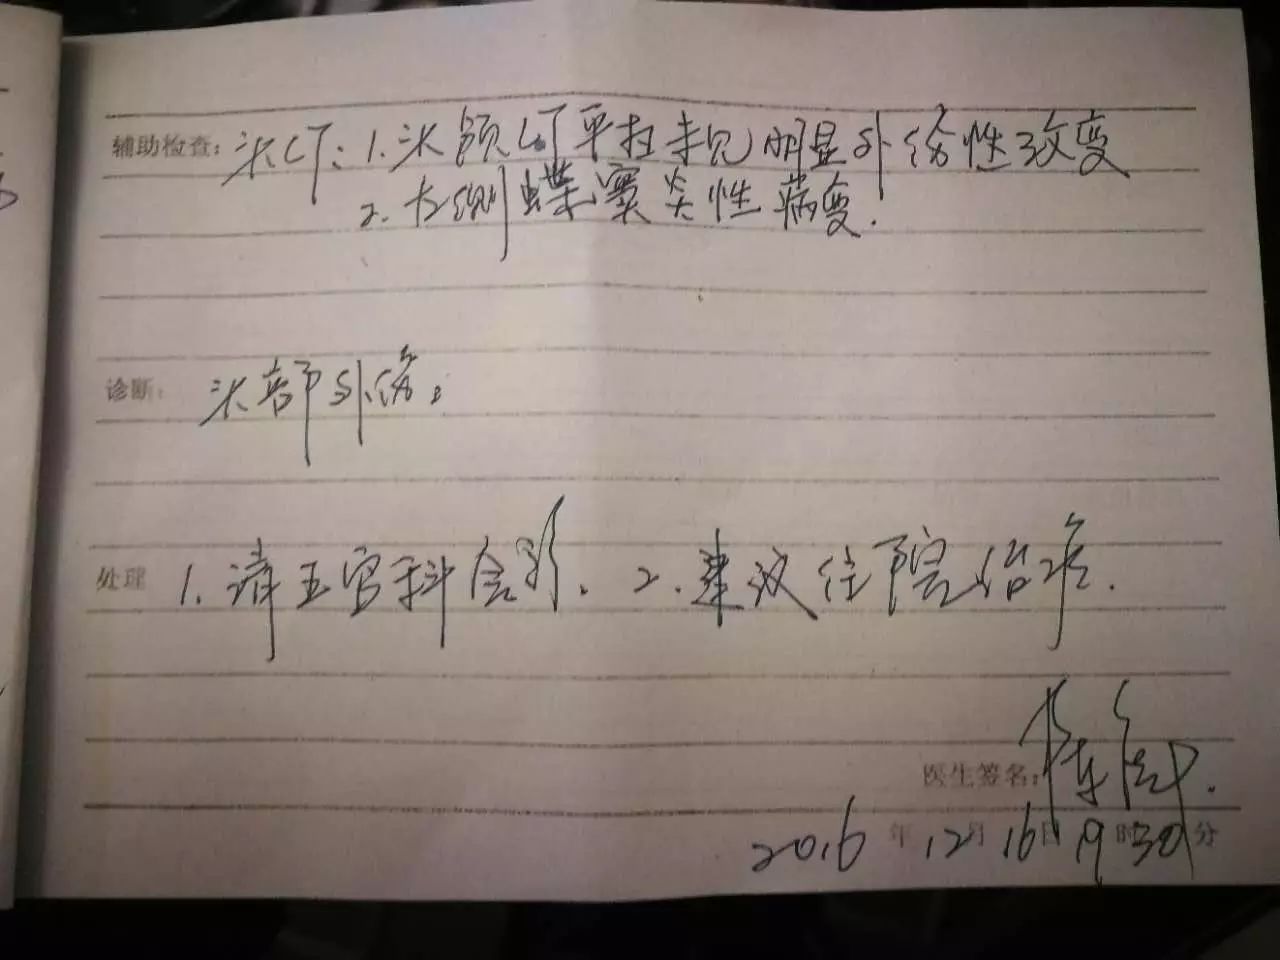 辅助检查: 头CT: 1. 头颅CT平扫未见明显外伤性改变
2. 左侧蝶窦炎性病变.
诊断: 头部外伤.
处理 1. 请五官科会诊. 2. 建议住院治疗.
医生签名: 陈
2016年12月16日19时30分